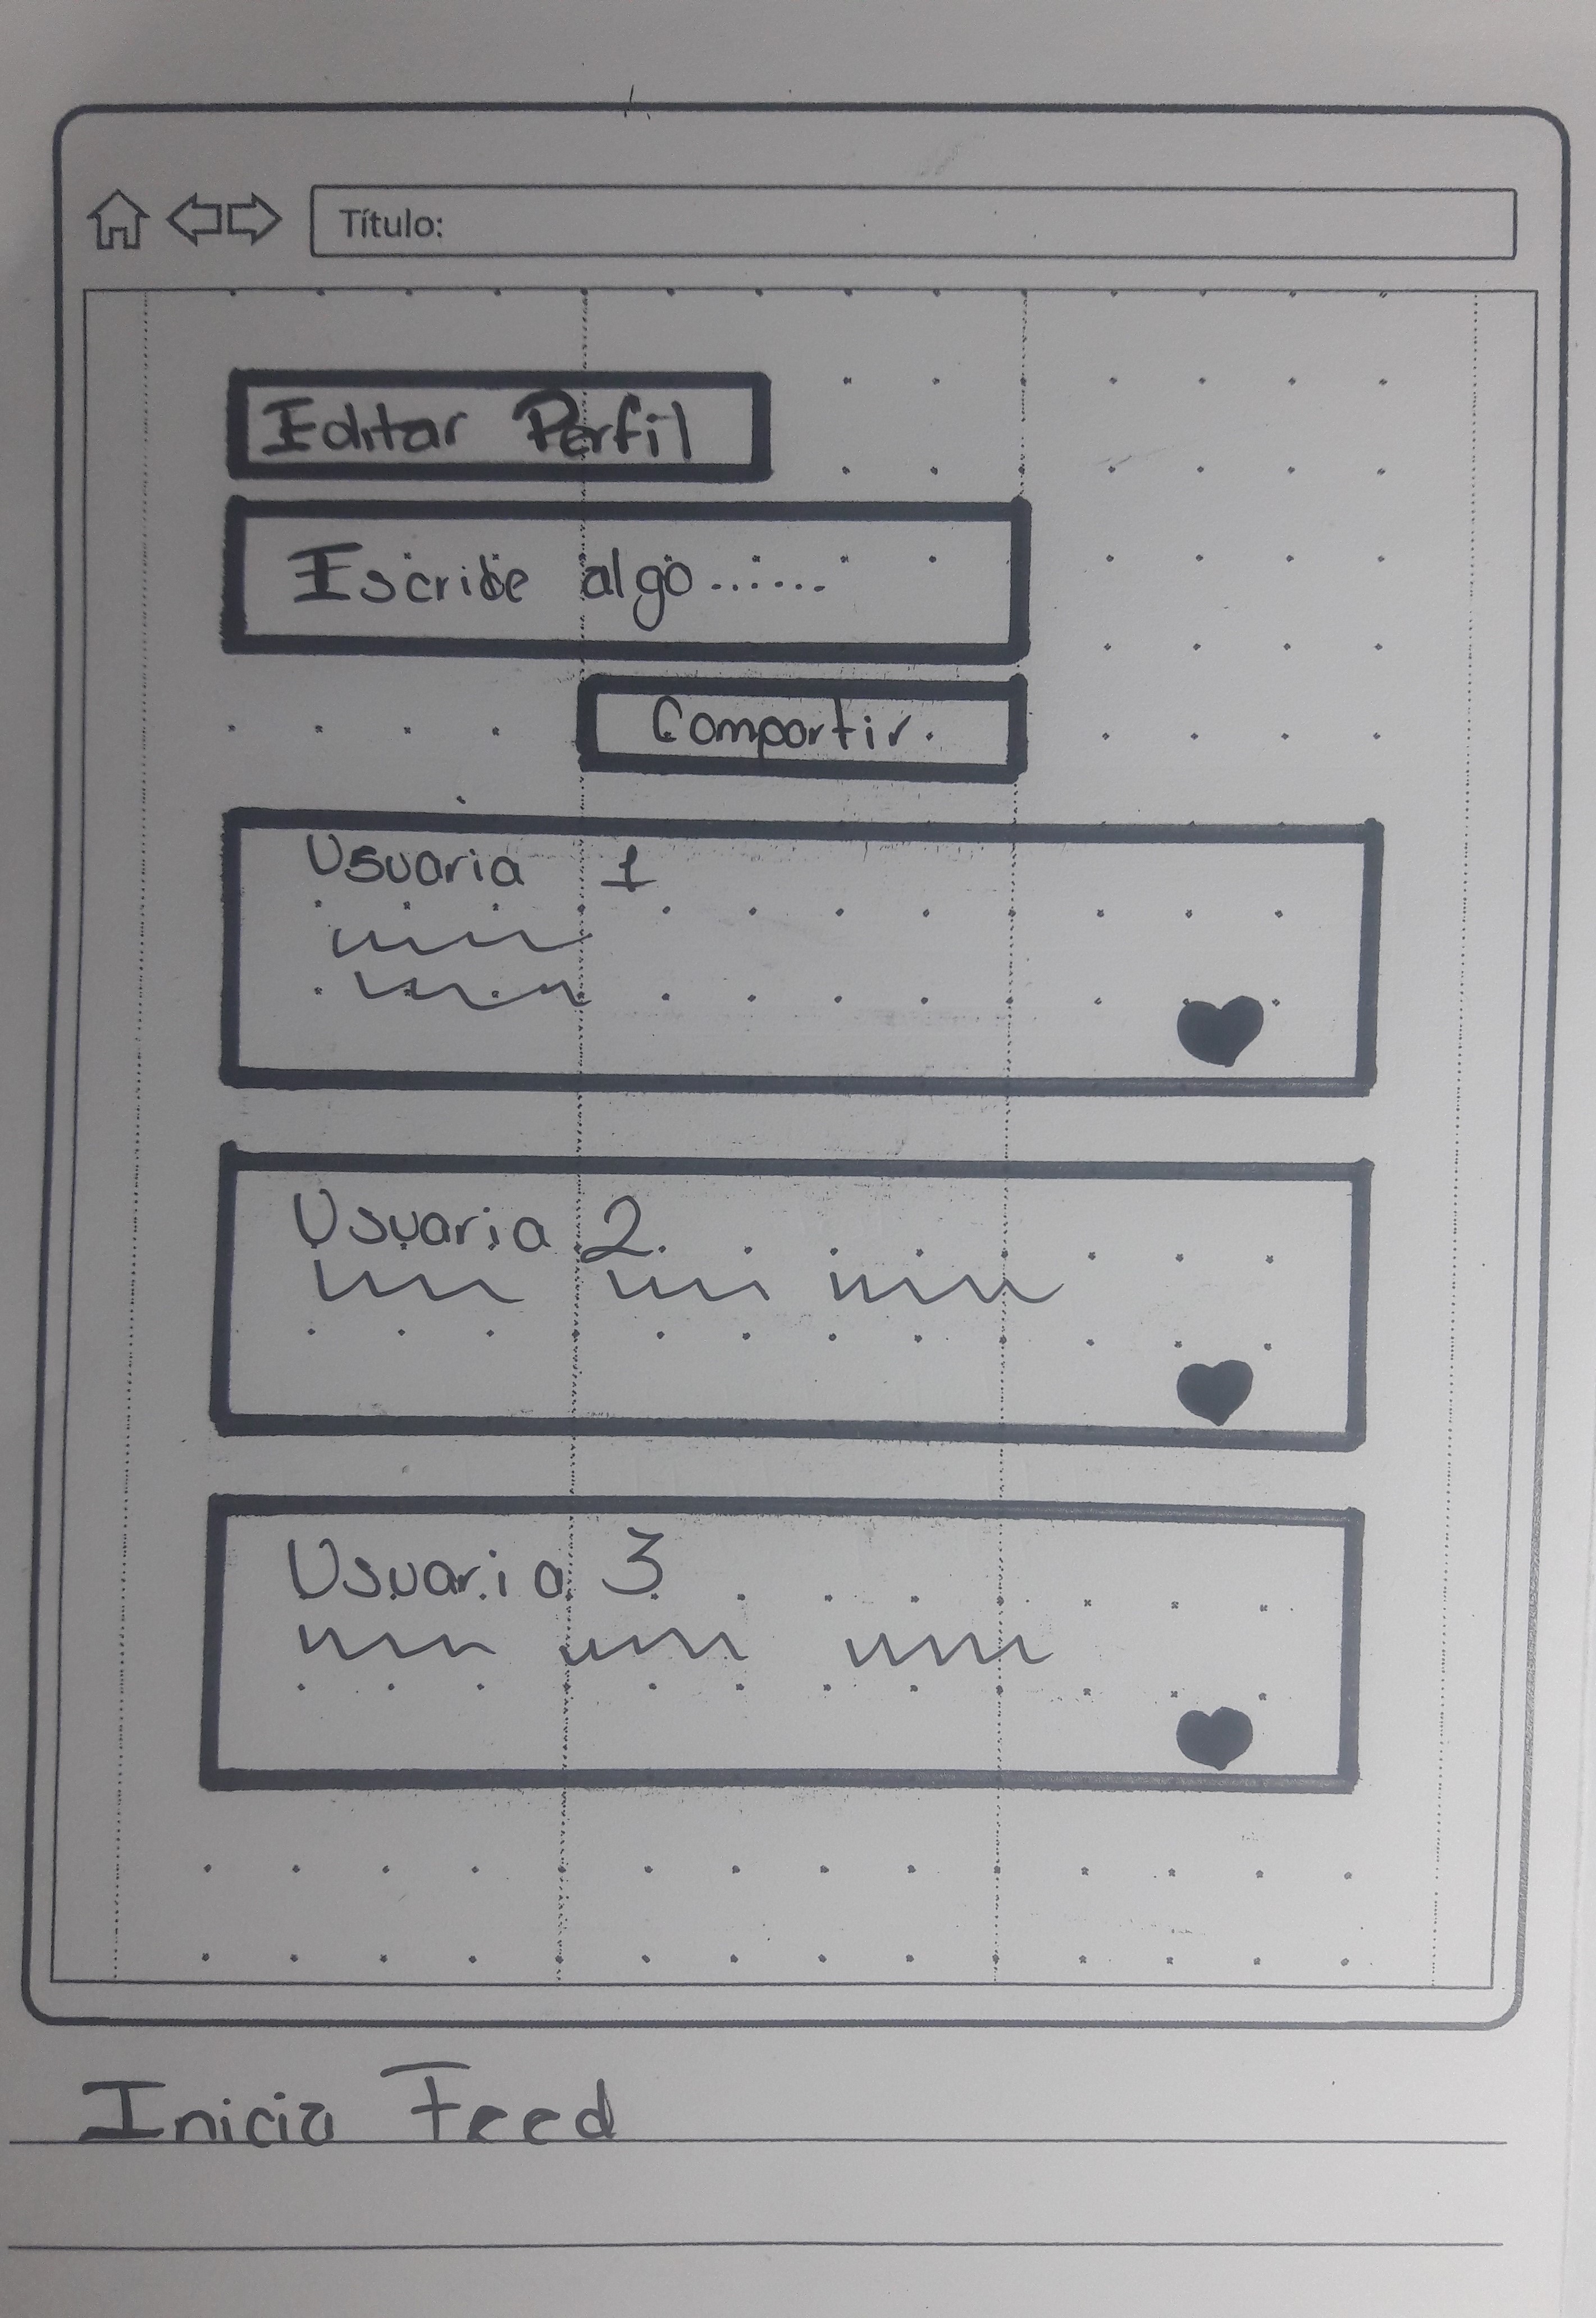 Título:
Editar Perfil
Escribe algo.......
Compartir.
Usuaria 1
Usuaria 2
Usuaria 3
Inicia Feed